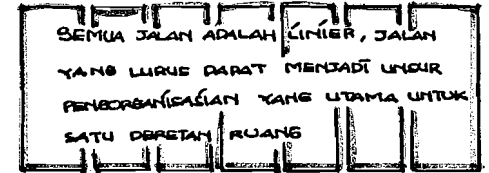 SEMUA JALAN ADALAH LINIER, JALAN
YANG LURUS DAPAT MENJADI UNSUR
PENGORGANISASIAN YANG UTAMA UNTUK
SATU DERETAN RUANG